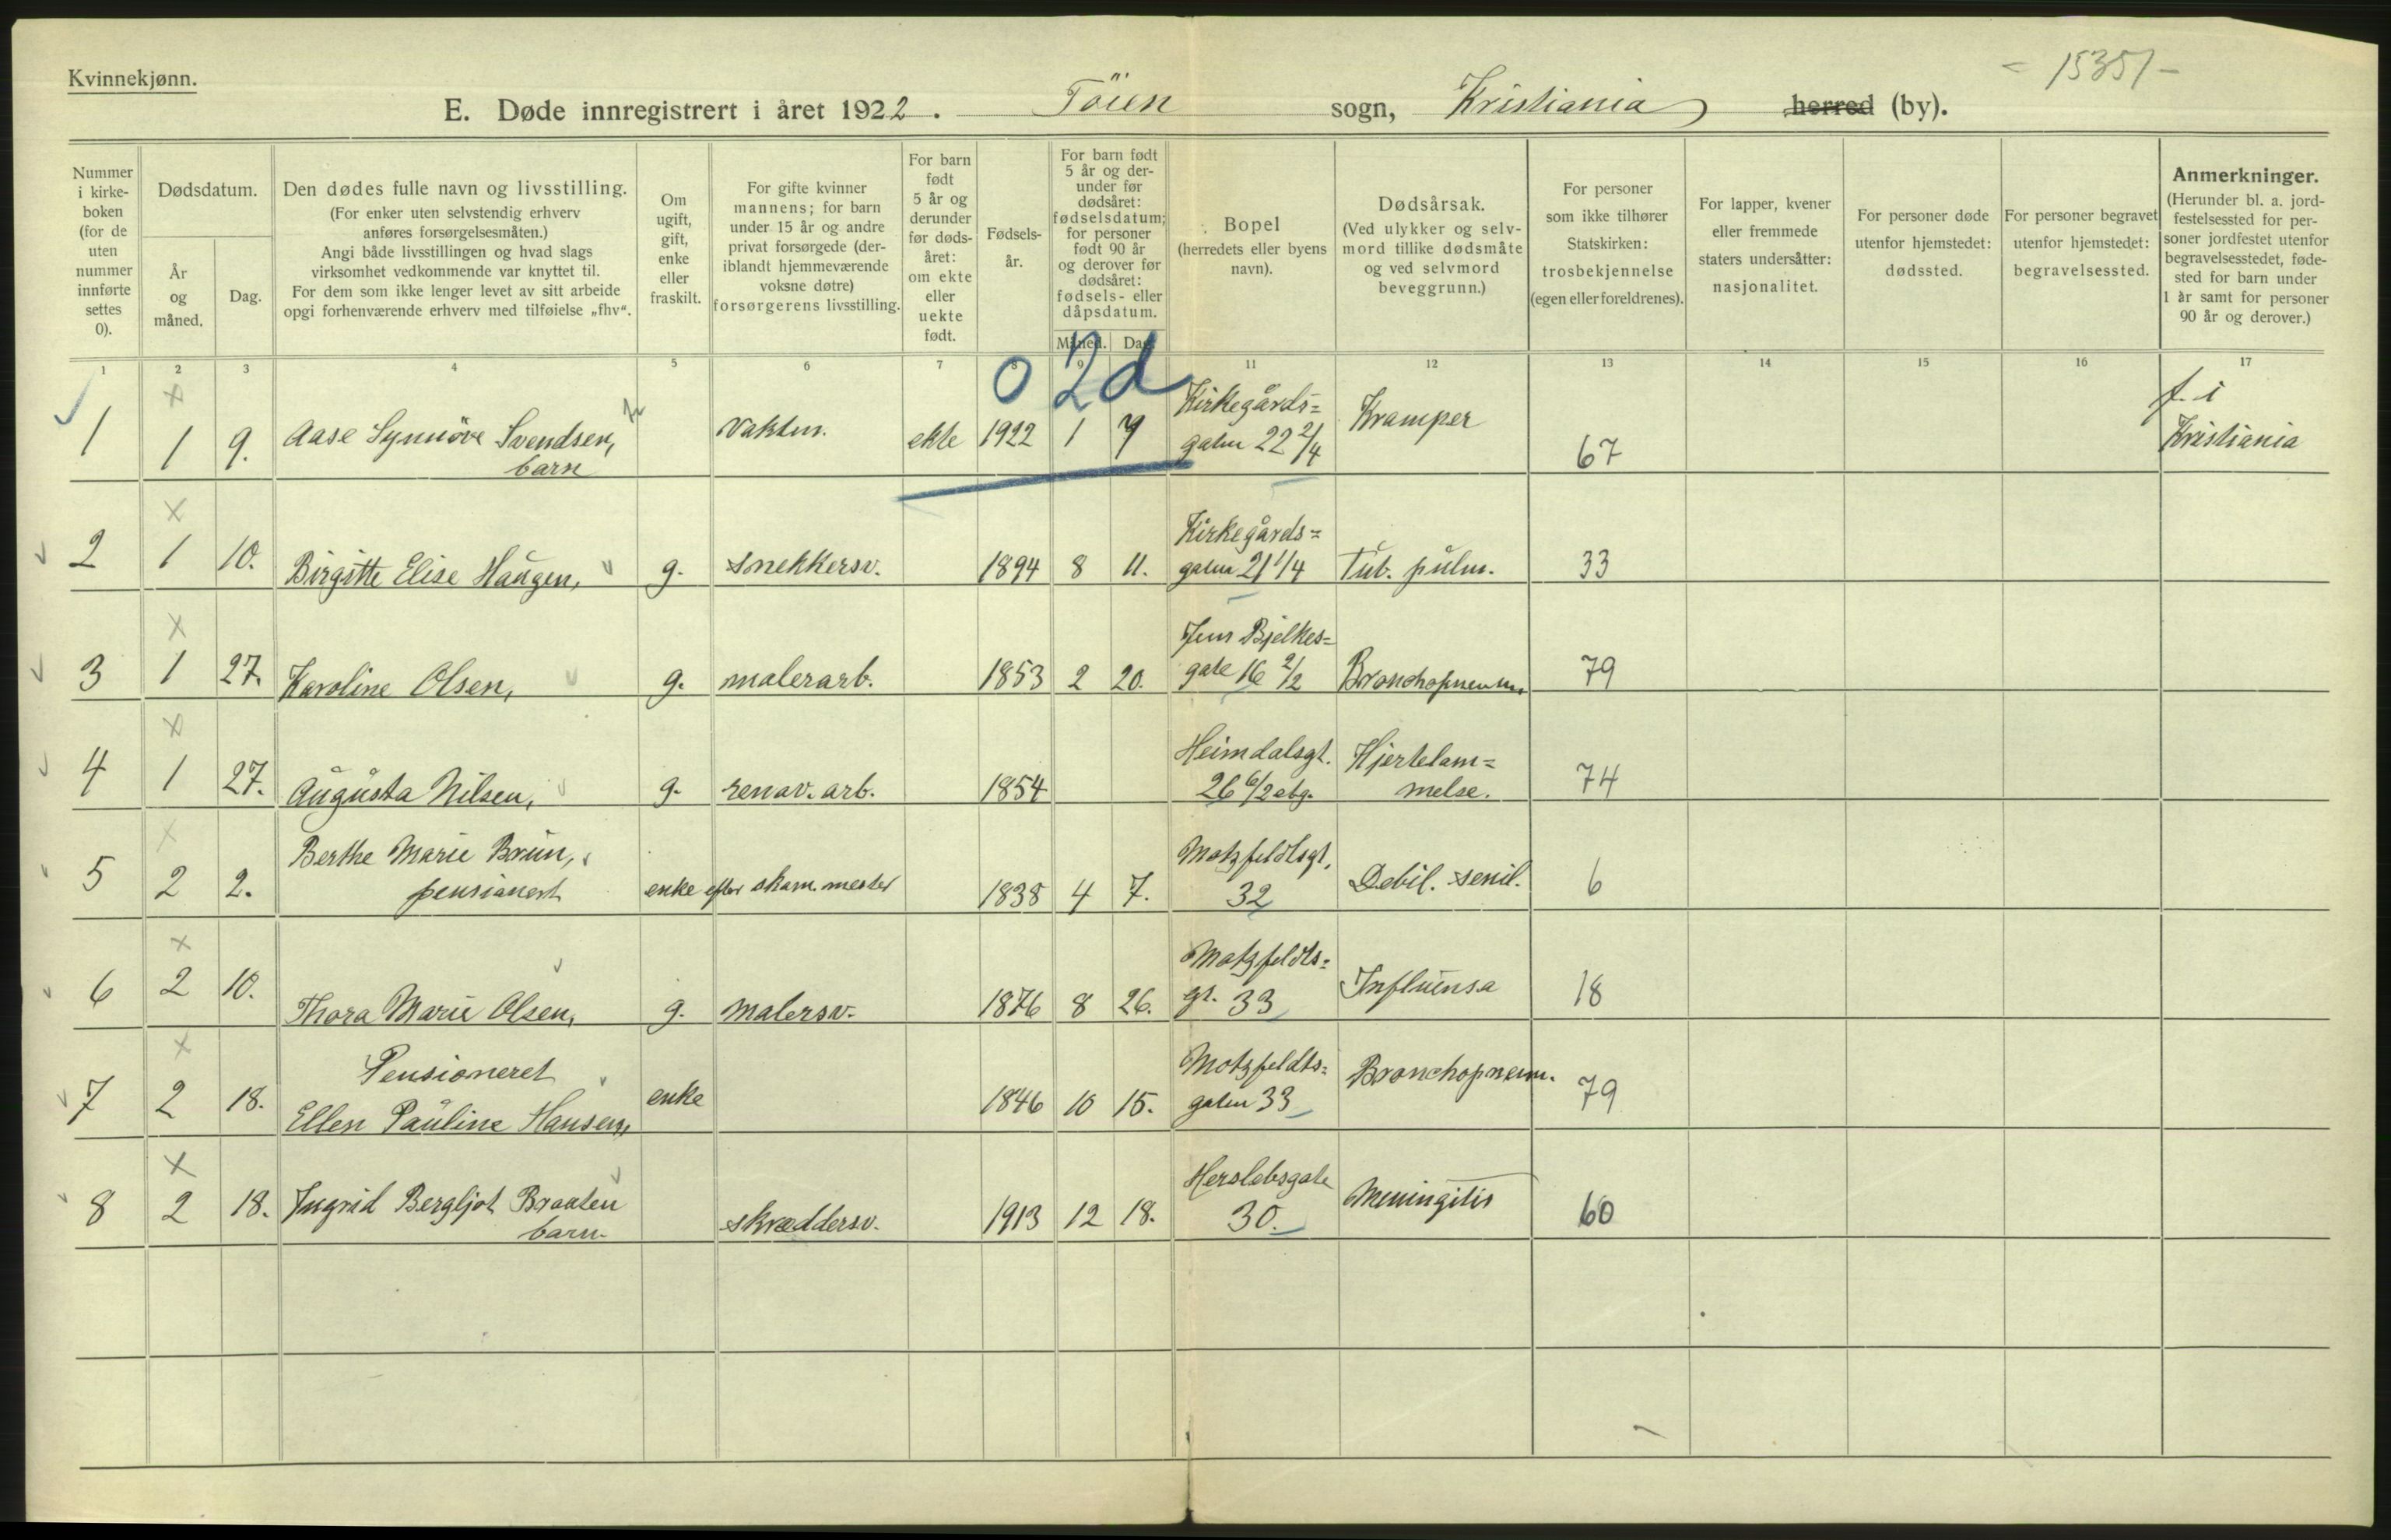 Kvinnekjønn.
15351 -
E. Døde innregistrert i året 1922. Töien sogn, Kristiania herred (by).
Nummer i kirke- boken (for de uten nummer innførte settes 0).
Dødsdatum.
År og måned.
Dag.
Den dødes fulle navn og livsstilling.
(For enker uten selvstendig erhverv
anføres forsørgelsesmåten.)
Angi både livsstillingen og hvad slags
virksomhet vedkommende var knyttet til.
For dem som ikke lenger levet av sitt arbeide
opgi forhenværende erhverv med tilføielse „fhv“.
Om ugift, gift, enke eller fraskilt.
For gifte kvinner
mannens; for barn
under 15 år og andre
privat forsørgede (der-
iblandt hjemmeværende
voksne døtre)
forsørgerens livsstilling.
For barn født 5 år og derunder før døds- året: om ekte eller uekte født.
Fødsels- år.
For barn født
5 år og der-
under før
dødsåret:
fødselsdatum;
for personer
født 90 år
og derover før
dødsåret:
fødsels- eller
dåpsdatum.
Måned. Dag.
Bopel
(herredets eller byens
navn).
Dødsårsak.
(Ved ulykker og selv-
mord tillike dødsmåte
og ved selvmord
beveggrunn.)
For personer
som ikke tilhører
Statskirken:
trosbekjennelse
(egen eller foreldrenes).
For lapper, kvener
eller fremmede
staters undersåtter:
nasjonalitet.
For personer døde
utenfor hjemstedet:
dødssted.
For personer begravet
utenfor hjemstedet:
begravelsessted.
Anmerkninger.
(Herunder bl. a. jord-
festelsessted for per-
soner jordfestet utenfor
begravelsesstedet, føde-
sted for barn under
1 år samt for personer
90 år og derover.)
1 2 3 4 5 6 7 8 9 11 12 13 14 15 16 17
0 2d
1 1 9. Aase Synnöve Svendsen, barn vaktm. ekte 1922 1 7 Kirkegårds= gaten 22 2/4 Kramper 67 f. i Kristiania
2 1 10. Birgitte Elise Haugen, g. snekkersv. 1894 8 11. Kirkegårds= gaten 21 1/4 Tub. pulm. 33
3 1 27. Karoline Olsen, g. malerarb. 1853 2 20. Jens Bjelkes= gate 16 2/2 Bronchopneum 79
4 1 27. Augusta Nilsen, g. renov. arb. 1854 Heimdalsgt. 26 6/2 obg. Hjertelam= melse. 74
5 2 2. Berthe Marie Brun, pensionert enke efter skom. mester 1838 4 7. Motzfeldtsgt. 32 Debil. senil. 6
6 2 10. Thora Marie Olsen, g. malersv. 1876 8 26. Motzfeldts= gt. 33 Influensa 18
7 2 18. Pensioneret Ellen Pauline Hansen, enke 1846 10 15. Motzfeldts= gaten 33 Bronchopneum. 79
8 2 18. Ingrid Bergljot Braaten barn. skræddersv. 1913 12 18. Herslebsgate 30. Meningitis 60